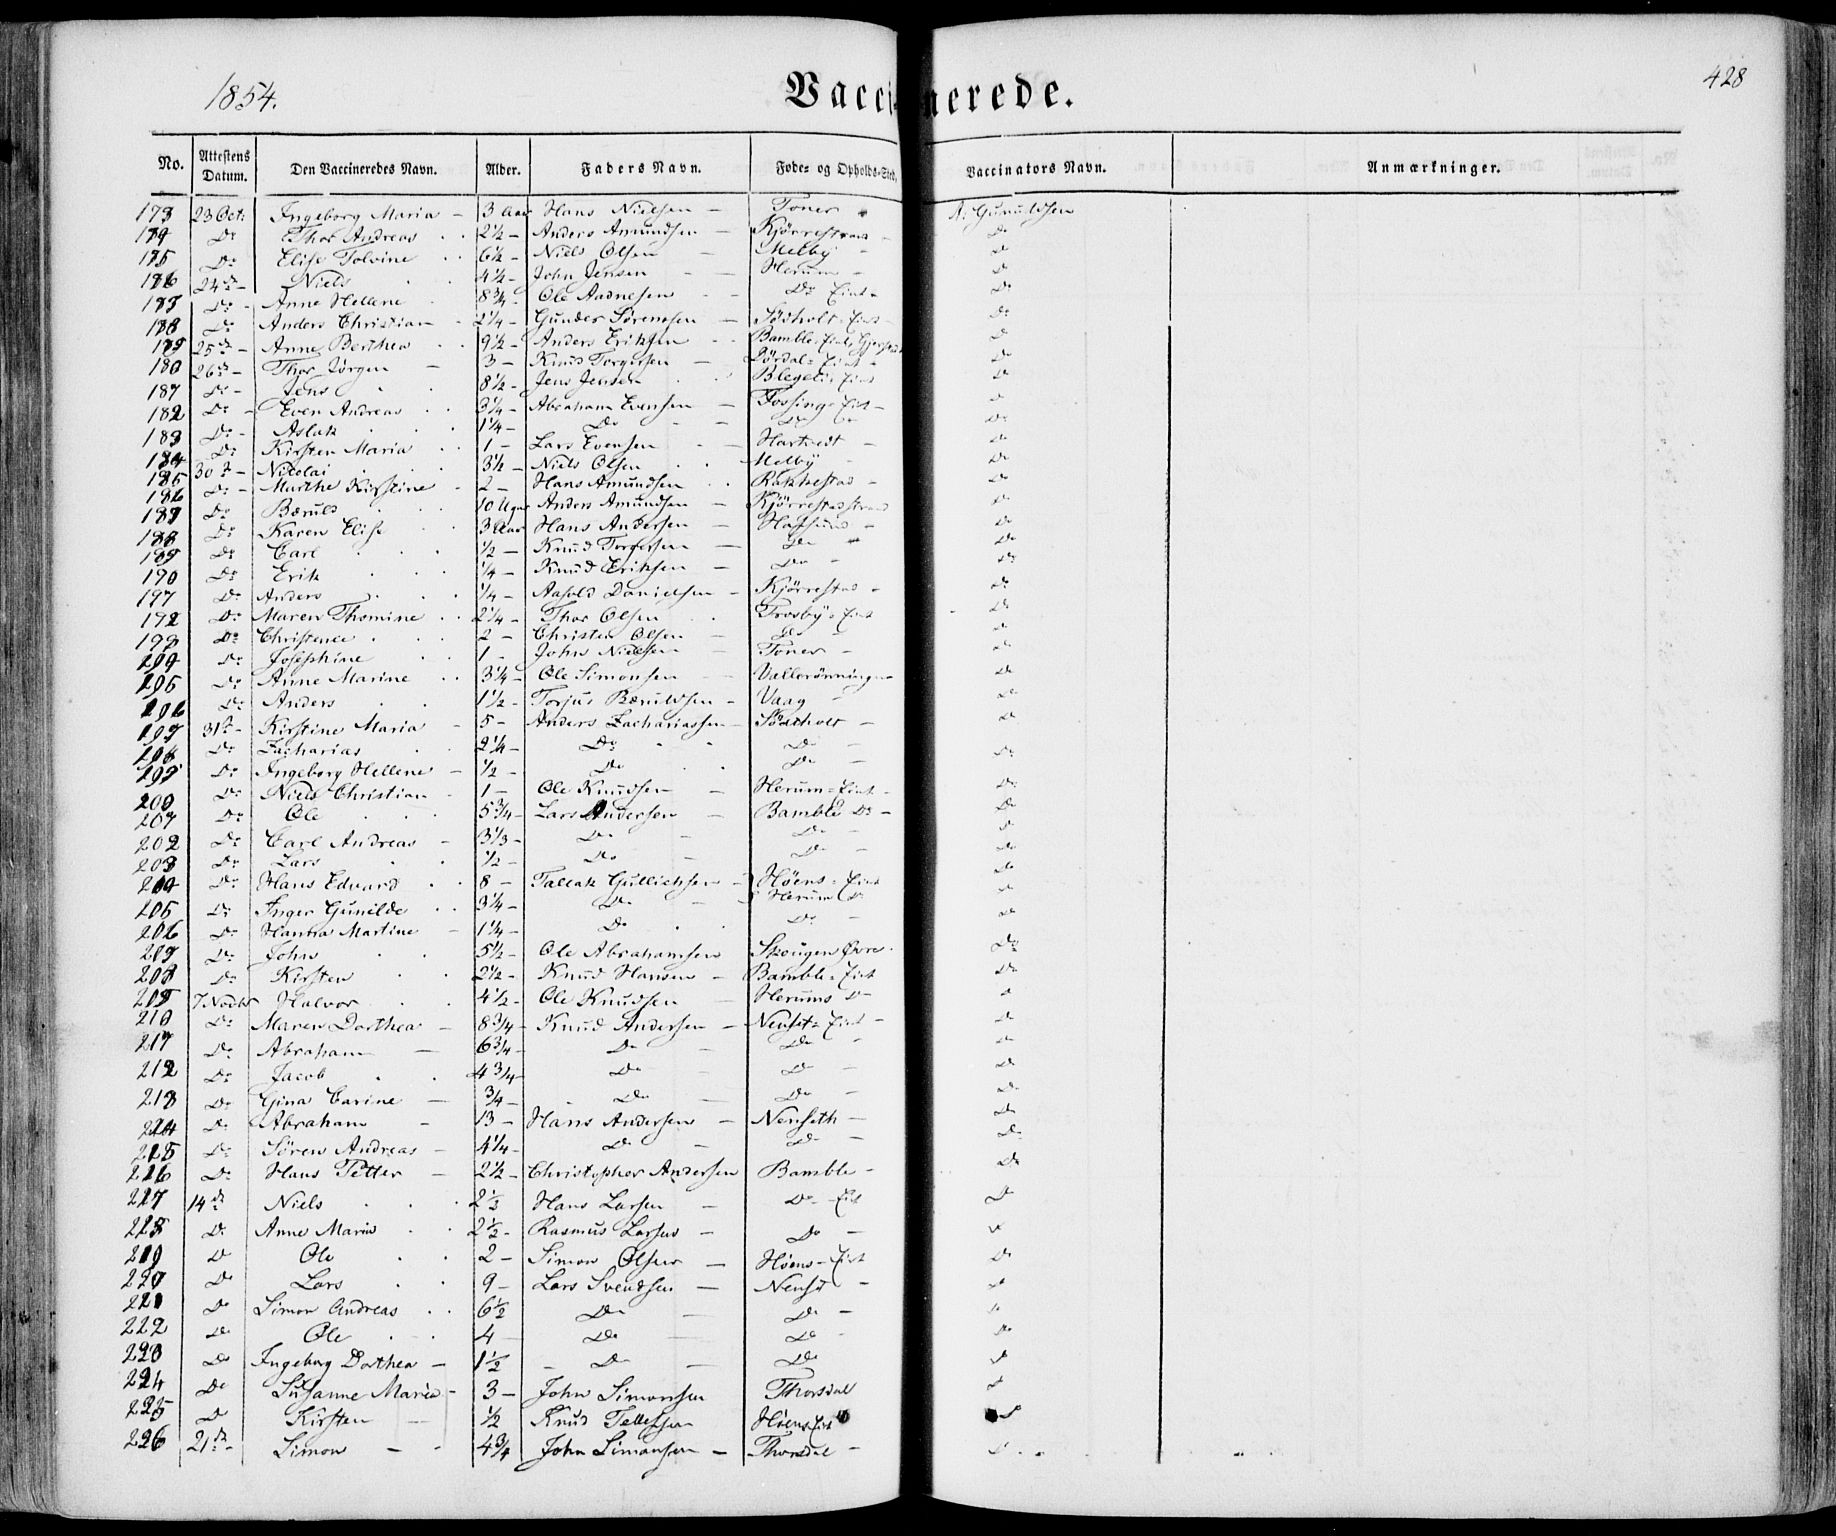 1854.
Vaccinerede.
428
No. Attestens Datum. Den Vaccineredes Navn. Alder. Faders Navn. Føde- og Opholds-Sted. Vaccinators Navn. Anmærkninger.
173 23 Oct: Ingeborg Maria - 3 Aar Hans Nielsen - Toner A: Gunuldsen
174 Do Thor Andreas 2 1/2 - Anders Amundsen - Kjörrestrand - Do
175 Do Elise Tolvine 6 1/2 - Niels Olsen - Melby - Do
176 24de - Niels 4 1/2 - John Jensen - Herum - Do
177 Do - Anne Hellene 8 3/4 - Ole Aadnesen - Do Eiet - Do
178 Do Anders Christian - 2 1/4 - Gunder Sörensen - Södtholt - Eiet - Do
179 25de - Anne Berthea 9 1/2 - Anders Eriksen - Bamble - Eiet, Do
180 26de - Thor Jörgen - 3 - Knud Torgersen - Dördal - Eiet - Do
181 Do - Jens 8 1/2 - Jens Jensen Eiet Do
182 Do - Even Andreas 3 1/4 - Abraham Evensen - Fossing - Eiet - Do
183 Do - Aslak 1 1/4 - Do - Do Do Do
184 Do Kirsten Maria 1 - Lars Evensen - Hartvedt - Do
185 30te - Nicolai 3 1/2 - Niels Olsen Melby - Do
186 Do - Marthe Kirstine - 2 - Hans Amundsen Rakkestad - Do
187 Do Bæruld 10 Uger Anders Amundsen - Kjörrestadstrand Do
188 Do Karen Elise 3 Aar Hans Andersen - Hafsund - Do
189 Do Carl 1/2 - Knud Torgersen - Do Do
190 Do Erik 1/4 - Knud Eriksen - Do - Do
191 Do Anders 1/4 - Aasold Danielsen - Kjörrestad - Do
192 Do Maren Thomine 2 1/4 - Thor Olsen Trosby - Eiet Do
193 Do Christence 2 - Christen Olsen - Do - Do
194 Do Josephine 1 - John Nielsen - Toner - Do
195 Do Anne Marine 3 1/4 - Ole Simonsen - Vallerönningen Do
196 Do Anders 1 1/2 - Torjus Bæruldsen - Vaag - Do
197 31te - Kirstine Maria - 5 - Anders Zachariassen - Södtholt - Do
198 Do Zacharias 2 1/4 - Do Do - Do
199 Do Ingeborg Hellene - 1/2 - Do Do - Do
200 Do Niels Christian - 1 - Ole Knudsen - Herum - Eiet - Do
201 Do Ole 5 3/4 - Lars Andersen - Bamble Do - Do
202 Do Carl Andreas - 3 1/3 - Do - Do - Do
203 Do Lars 1/2 - Do - Do - Do
204 Do Hans Eduard 8 - Tallak Gullichsen - Höens - Eiet Do
205 Do Inger Gunilde 3 1/4 - Do - Herum Do Do
206 Do Hanna Martine - 1 1/4 - Do Do - Do
207 Do John 5 1/2 - Ole Abrahamsen Skougen Øvre Do
208 Do Kirsten 2 1/2 - Knud Hansen - Bamble - Eiet Do
209 7 Novbr Halvor 4 1/2 - Ole Knudsen - Herums Do Do
210 Do Maren Dorthea - 8 3/4 - Knud Andersen - Nenset - Eiet - Do
211 Do Abraham - 6 3/4 - Do - Do - Do
212 Do Jacob 4 3/4 - Do - Do - Do
213 Do Gina Carine - 3/4 - Do - Do - Do
214 Do Abraham - 13 - Hans Andersen - Nenseth - Do
215 Do Sören Andreas - 4 1/4 - Do - Do - Do
216 Do Hans Petter - 2 1/2 - Christopher Andersen Bamble - Do
217 14de Niels 2 1/3 Hans Larsen - Do - Eiet Do
218 Do Anne Maria 2 1/2 - Rasmus Larsen - Do - Do
219 Do Ole 2 - Simon Olsen - Höens - Eiet Do
220 Do Lars 9 - Lars Svendsen - Nenset - Do
221 Do Simon Andreas 6 1/2 Do - Do - Do
222 Do Ole 4 - Do - Do - Do
223 Do Ingeborg Dorthea - 1 1/2 - Do - Do Do
224 Do Susanne Maria - 3 - John Simonsen Thorsdal Do
225 Do Kirsten - 1/2 Knud Tellefsen Höens Eiet Do
226 21de - Simon - 4 3/4 John Simonsen - Thorsdal - Do